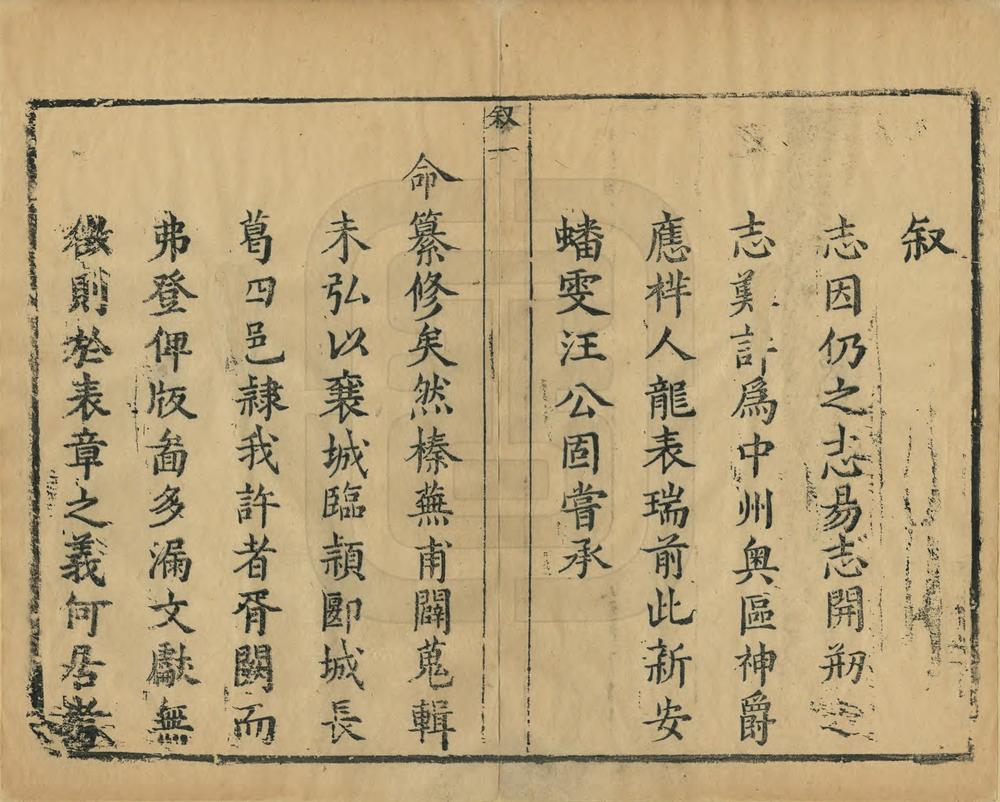 叙
志因仍之志易志開刱之
志難許爲中州奥區神爵
應祥人龍表瑞前此新安
蟠雯汪公固嘗承
叙一
命纂修矣然榛蕪甫闢蒐輯
未弘以襄城臨潁郾城長
葛四邑隷我許者胥闕而
弗登俾版啚多漏文獻無
徵則於表章之義何居